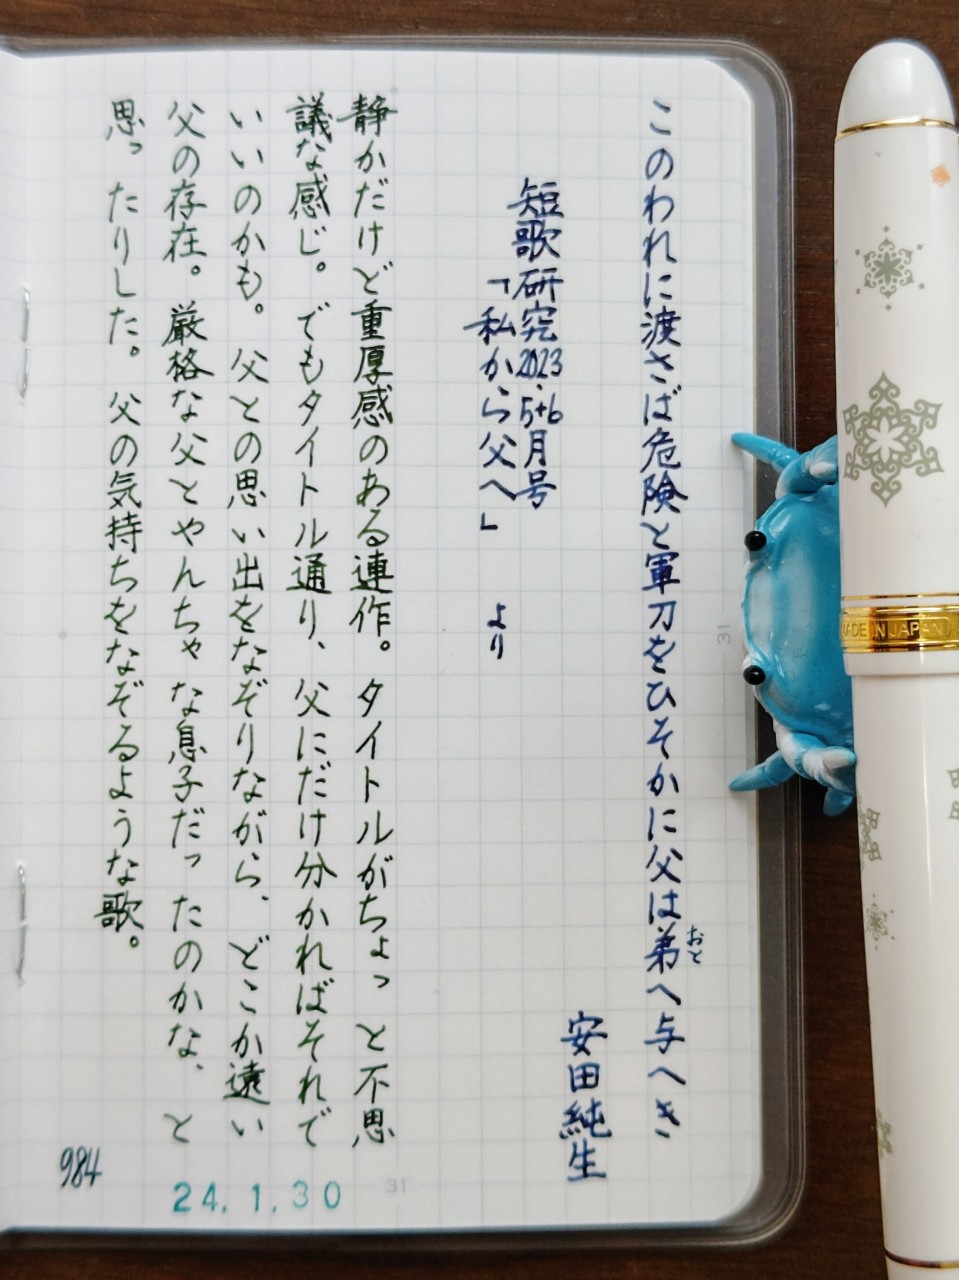 このわれに渡さば危険と軍刀をひそかに父は弟へ与へき
おと
安田純生
短歌研究2023.5+6月号
「私から父へ」 より
静かだけど重厚感のある連作。タイトルがちょっと不思
議な感じ。でもタイトル通り、父にだけ分かればそれで
いいのかも。父との思い出をなぞりながら、どこか遠い
父の存在。厳格な父とやんちゃな息子だったのかな、と
思ったりした。父の気持ちをなぞるような歌。
984
24.1.30
31
31
MADE IN JAPAN